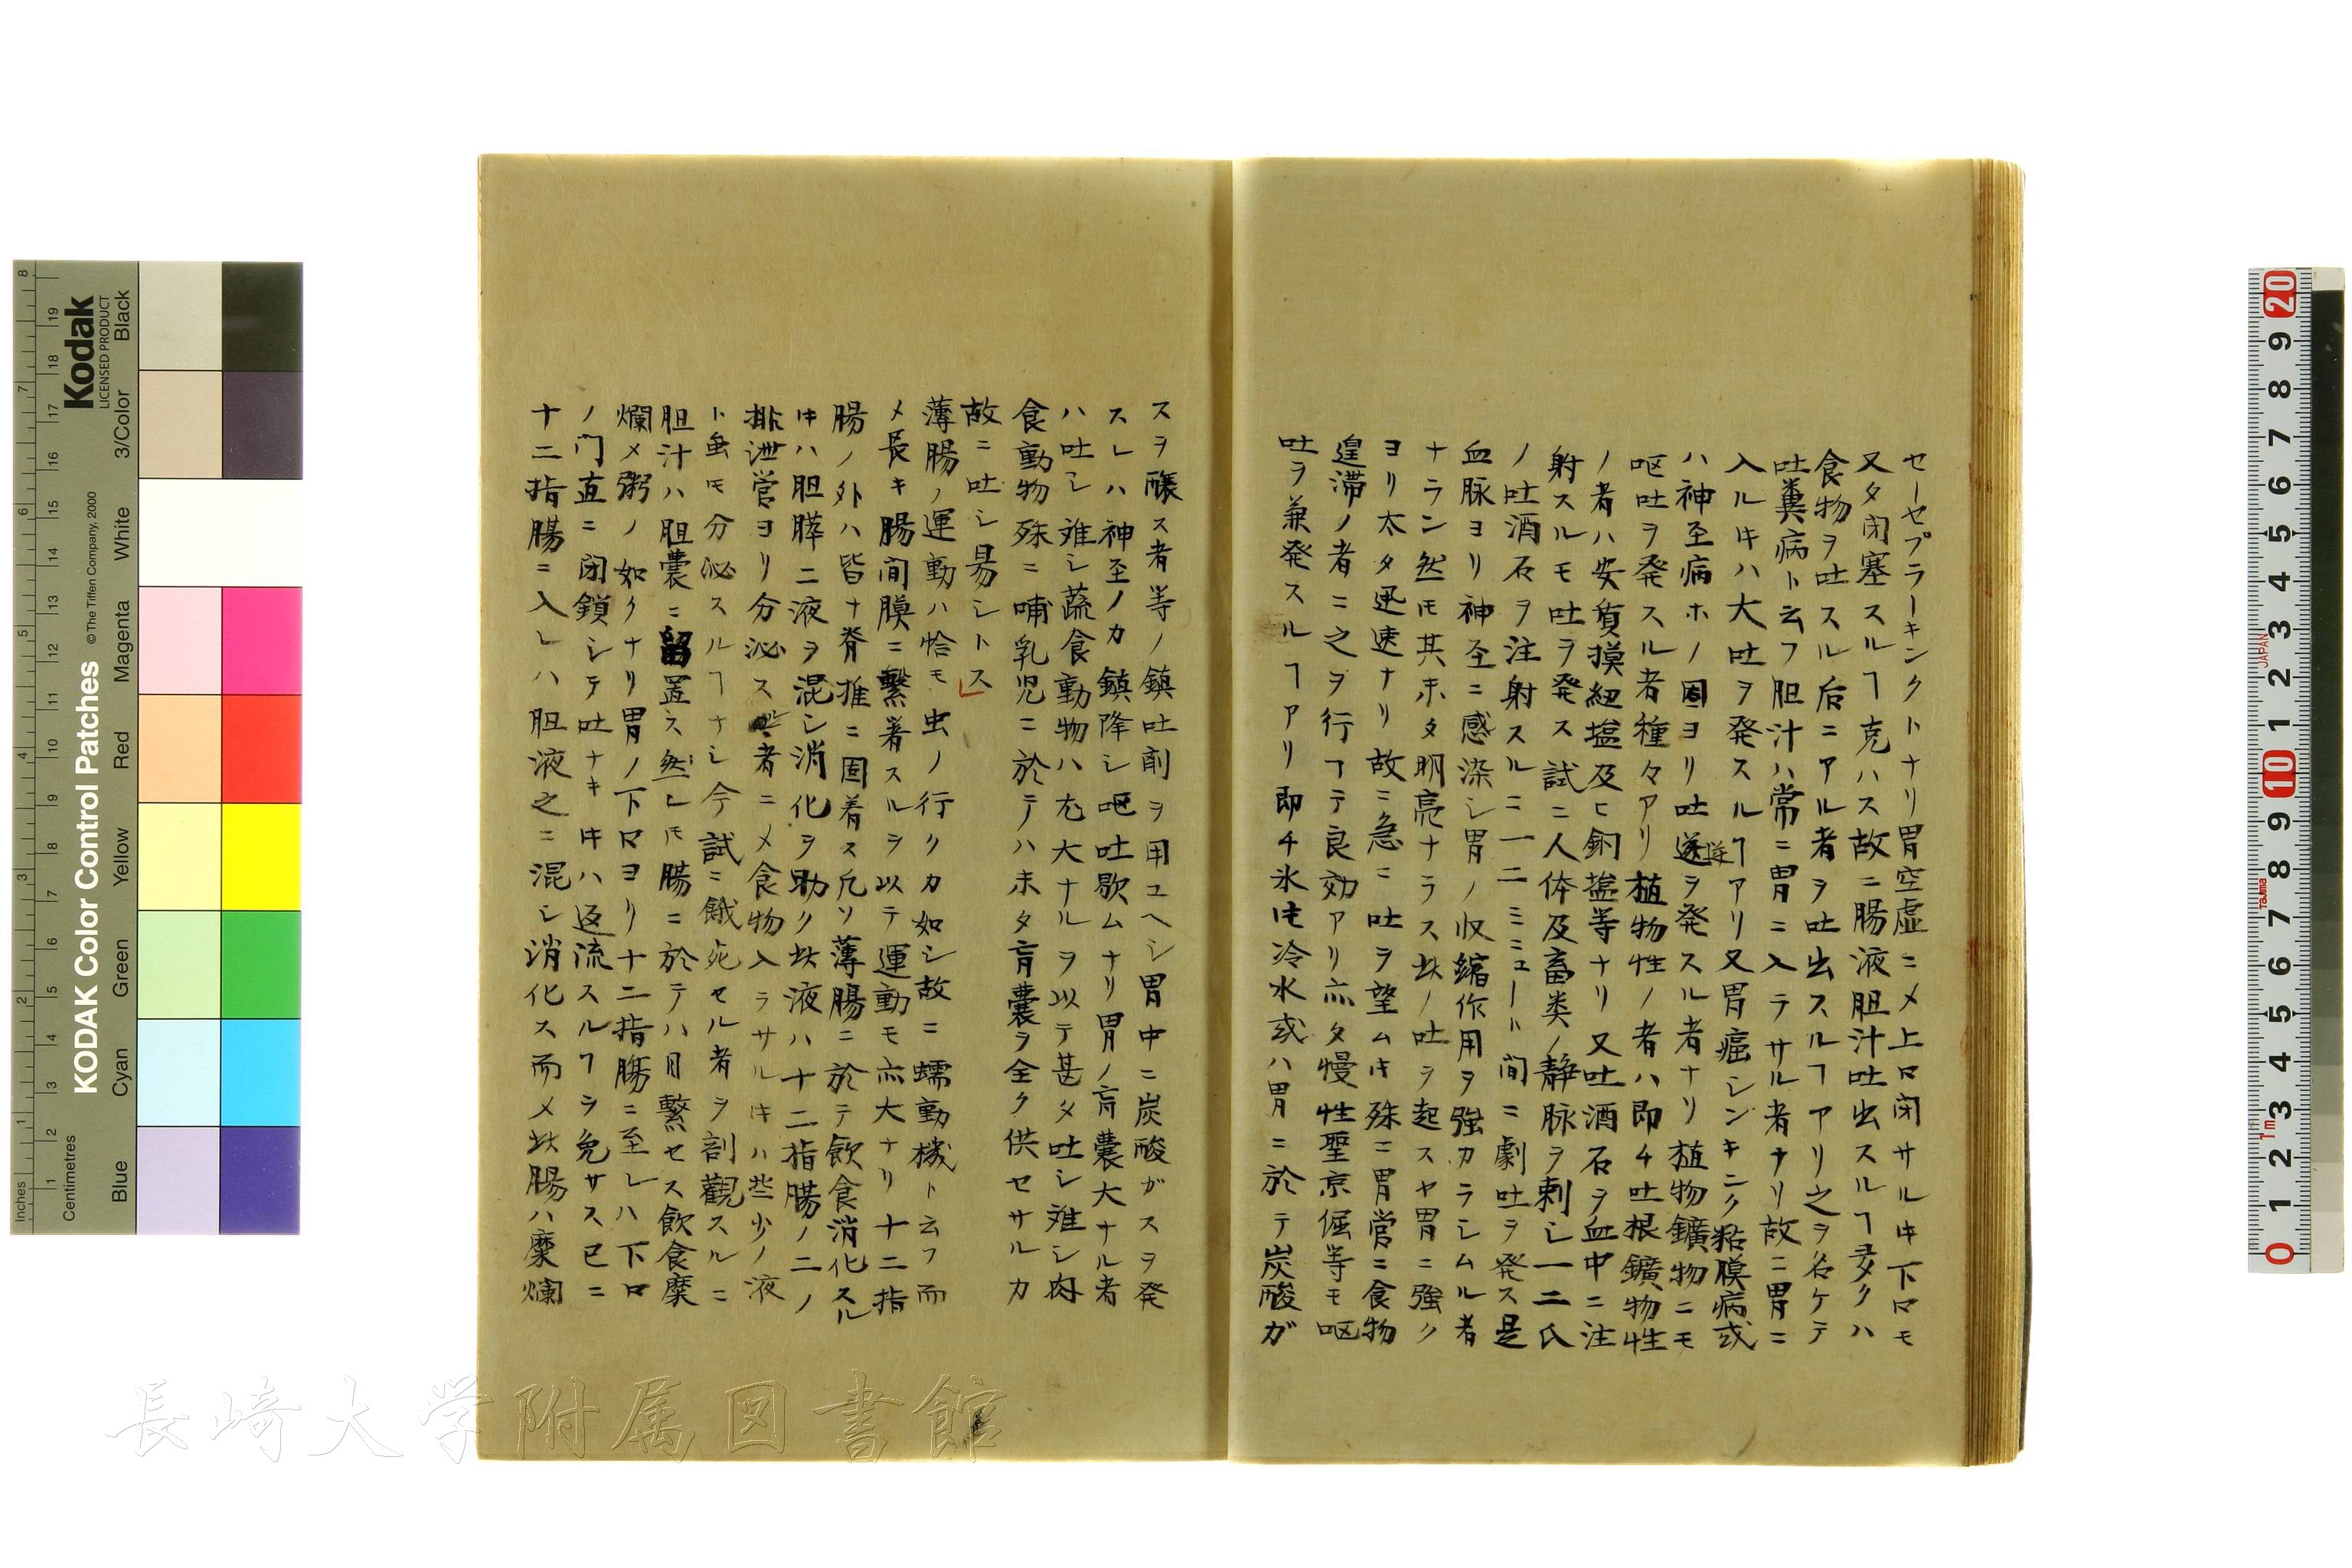 セーセプラーキンクトナリ胃空虚ニ〆上口閉サルキ下口モ
又タ閉塞スルヿ克ハス故ニ腸液胆汁吐出スルヿ多クハ
食物ヲ吐スル后ニアル者ヲ吐出スルヿアリ之ヲ名ケテ
吐糞病ト云フ胆汁ハ常ニ胃ニ入ラサル者ナリ故ニ胃ニ
入ルキハ大吐ヲ発スルヿアリ又胃癌シンキニク粘膜病或
ハ神至病ホノ因ヨリ吐逆ヲ発スル者ナリ植物鑛物ニモ
呕吐ヲ発スル者種々アリ植物性ノ者ハ即チ吐根鑛物性
ノ者ハ安質摸紐塩及ヒ銅塩等ナリ又吐酒石ヲ血中ニ注
射スルモ吐ヲ発ス試ニ人体及畜类ノ静脉ヲ刺シ一二氏
ノ吐酒石ヲ注射スルニ一二ミニュート間ニ劇吐ヲ発ス是
血脉ヨリ神至ニ感染シ胃ノ収縮作用ヲ強カラシムル者
ナラン然モ其未タ明亮ナラス此ノ吐ヲ起スヤ胃ニ強ク
ヨリ太タ迅速ナリ故ニ急ニ吐ヲ望ムキ殊ニ胃管ニ食物
遑滞ノ者ニ之ヲ行フテ良効アリ亦タ慢性聖京倔等モ呕
吐ヲ兼発スルヿアリ即チ氷㐧冷水或ハ胃ニ於テ炭酸ガ
スヲ醸ス者等ノ鎮吐剤ヲ用ユヘシ胃中ニ炭酸ガスヲ発
スレハ神至ノカ鎮降シ呕吐歇ムナリ胃ノ肓嚢大ナル者
ハ吐シ难シ蔬食動物ハ尤大ナルヲ以テ甚タ吐シ难シ肉
食動物殊ニ哺乳児ニ於テハ未タ肓嚢ヲ全ク供セサルカ
故ニ吐シ易シトス
薄腸ノ運動ハ恰モ虫ノ行クカ如シ故ニ蠕動機ト云フ而
〆長キ腸間膜ニ繋着スルヲ以テ運動モ亦大ナリ十二指
腸ノ外ハ皆ナ脊推ニ固着ス凡ソ薄腸ニ於テ飲食消化スル
キハ胆膵二液ヲ混シ消化ヲ助ク此液ハ十二指腸ノ二ノ
排泄管ヨリ分泌ス者ニ〆食物入ラサルキハ些少ノ液
ト虽モ分泌スルヿナシ今試ニ餓死セル者ヲ剖觀スルニ
胆汁ハ胆嚢ニ留置ス然レモ腸ニ於テハ月繋セス飲食糜
爛〆粥ノ如クナリ胃ノ下口ヨリ十二指腸ニ至レハ下口
ノ門直ニ閉鎖シテ吐ナキキハ返流スルヿヲ免サス已ニ
十二指腸ニ入レハ胆液之ニ混シ消化ス而〆此腸ハ糜爛
KODAK Color Control Patches
© The Tiffen Company, 2000
Kodak
LICENSED PRODUCT
Inches
Centimetres
Blue Cyan Green Yellow Red Magenta White 3/Color Black
JAPAN
Tajima
長崎大学附属図書館